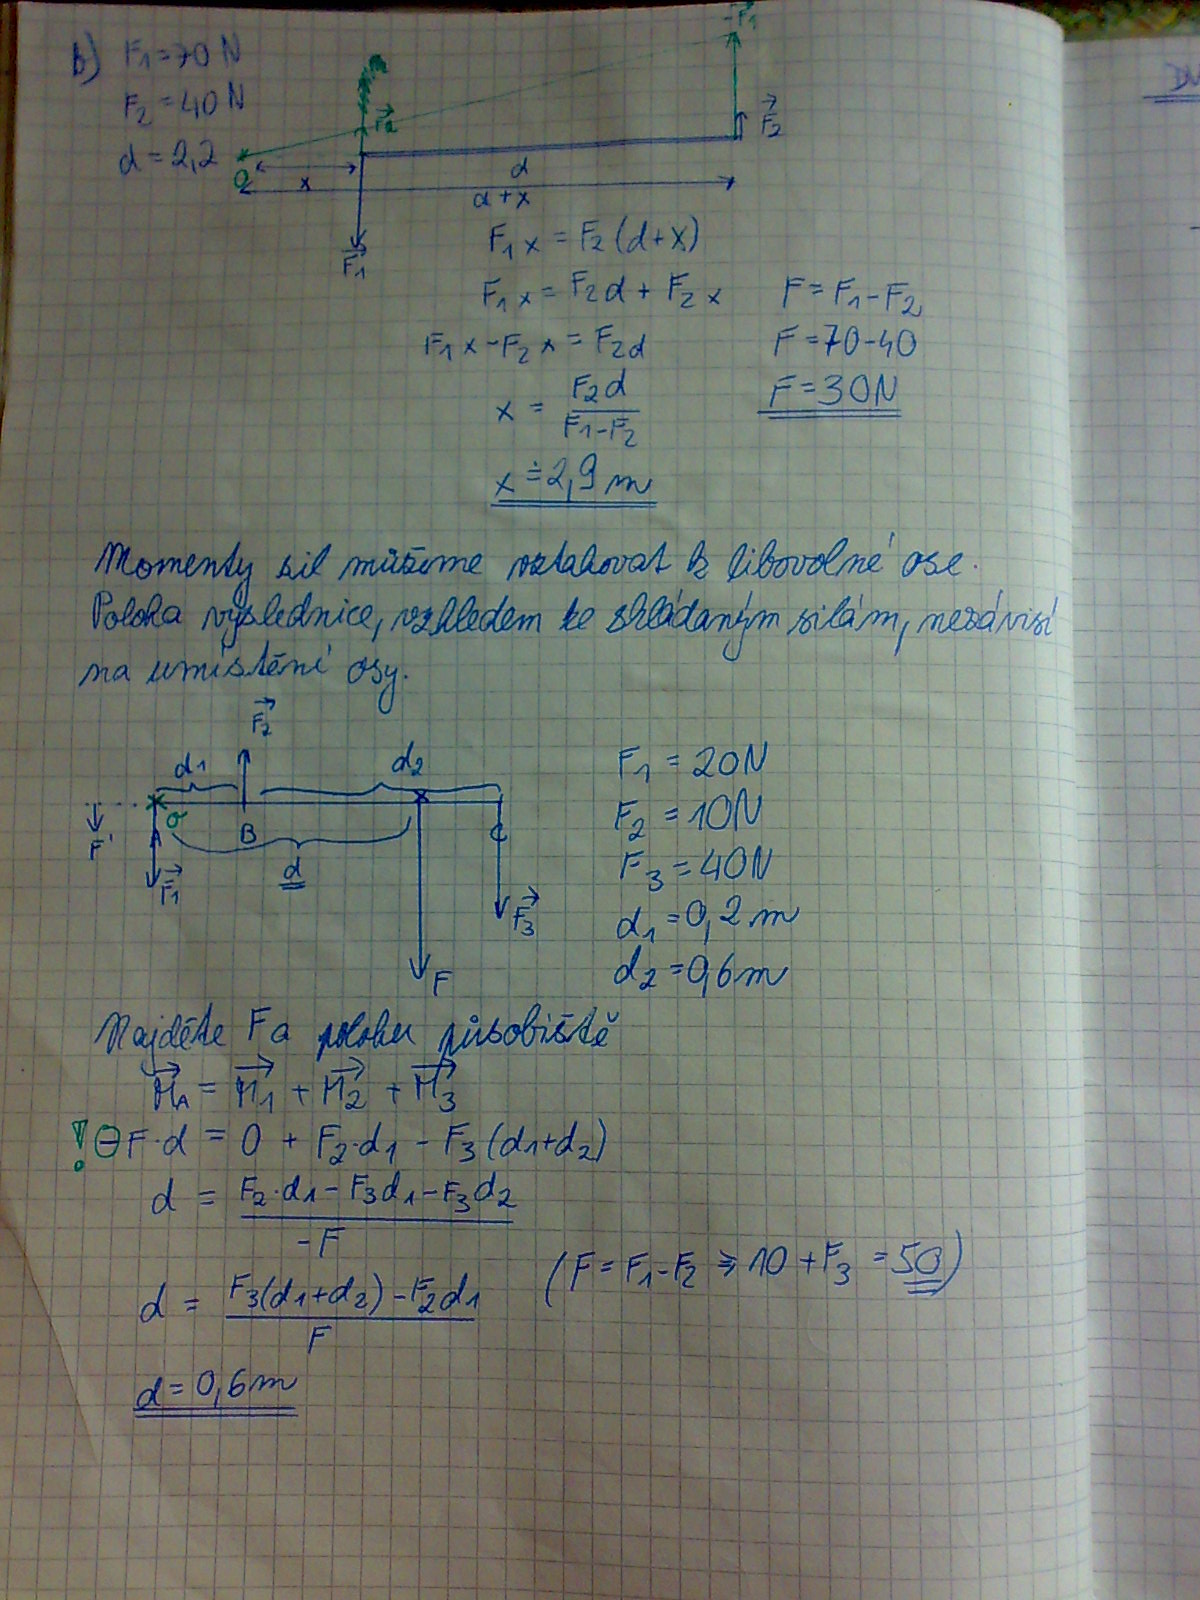 b) F₁=70 N
F₂=40 N
d=2,2
-F₁
F₂
F₂
O
x
d
d+x
F₁
F₁x = F₂(d+x)
F₁x = F₂d + F₂x
F₁x-F₂x = F₂d
x = F₂d / F₁-F₂
x ≐ 2,9 m
F = F₁-F₂
F = 70-40
F = 30N
DÚ
Momenty sil můžeme vztahovat k libovolné ose.
Poloha výslednice, vzhledem ke skládaným silám, nezávisí
na umístění osy.
F₂
d₁
d₂
F'
O
A
B
C
d
F₁
F₃
F
F₁ = 20N
F₂ = 10N
F₃ = 40N
d₁ = 0,2 m
d₂ = 0,6 m
Najděte F a polohu působiště
M_A = M₁ + M₂ + M₃
! ⊖F·d = 0 + F₂·d₁ - F₃(d₁+d₂)
d = F₂·d₁-F₃d₁-F₃d₂ / -F
(F = F₁-F₂ ⇒ 10 + F₃ = 50)
d = F₃(d₁+d₂)-F₂d₁ / F
d = 0,6 m